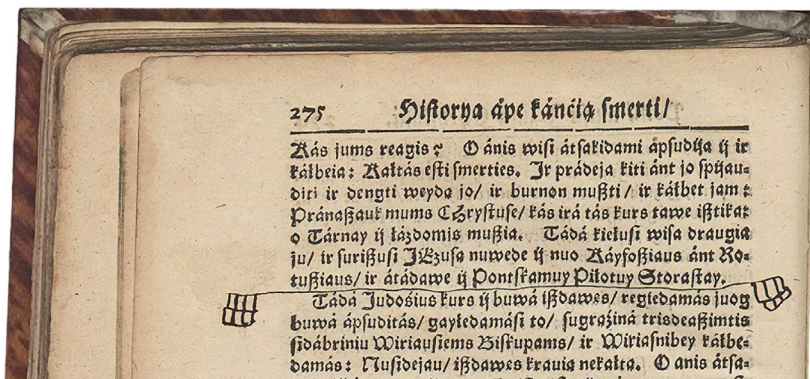 275 Historya ápe káncią smerti/
Kás jums reagis? O ánis wisi átsakidami ápsudija ij ir
kálbeia: Kaltás esti smerties. Ir prádeja kiti ánt jo spijau-
diti ir dengti weydą jo/ ir burnon mußti/ ir kálbet jam:
Pránaßauk mums CHrystuse/ kás irá tás kurs tawe ißtikai:
o Tárnay ij łázdomis mußia. Tádá kiełusi wisa draugia
ju/ ir surißusi JEzusą nuwede ij nuo Káyfoßiaus ánt Ro-
tußiaus/ ir átádawe ij Pontskamuy Piłotuy Storastay.
Tádá Judośius kurs ij buwá ißdawes/ regiedamás juog
buwá ápsuditás/ gayłedamási to/ sugrąźiná trisdeaßimtis
sidábriniu Wiriausiems Biskupams/ ir Wiriasnibey kálbe-
damás: Nusidejau/ ißdawes krauią nekałtą. O anis átsa-